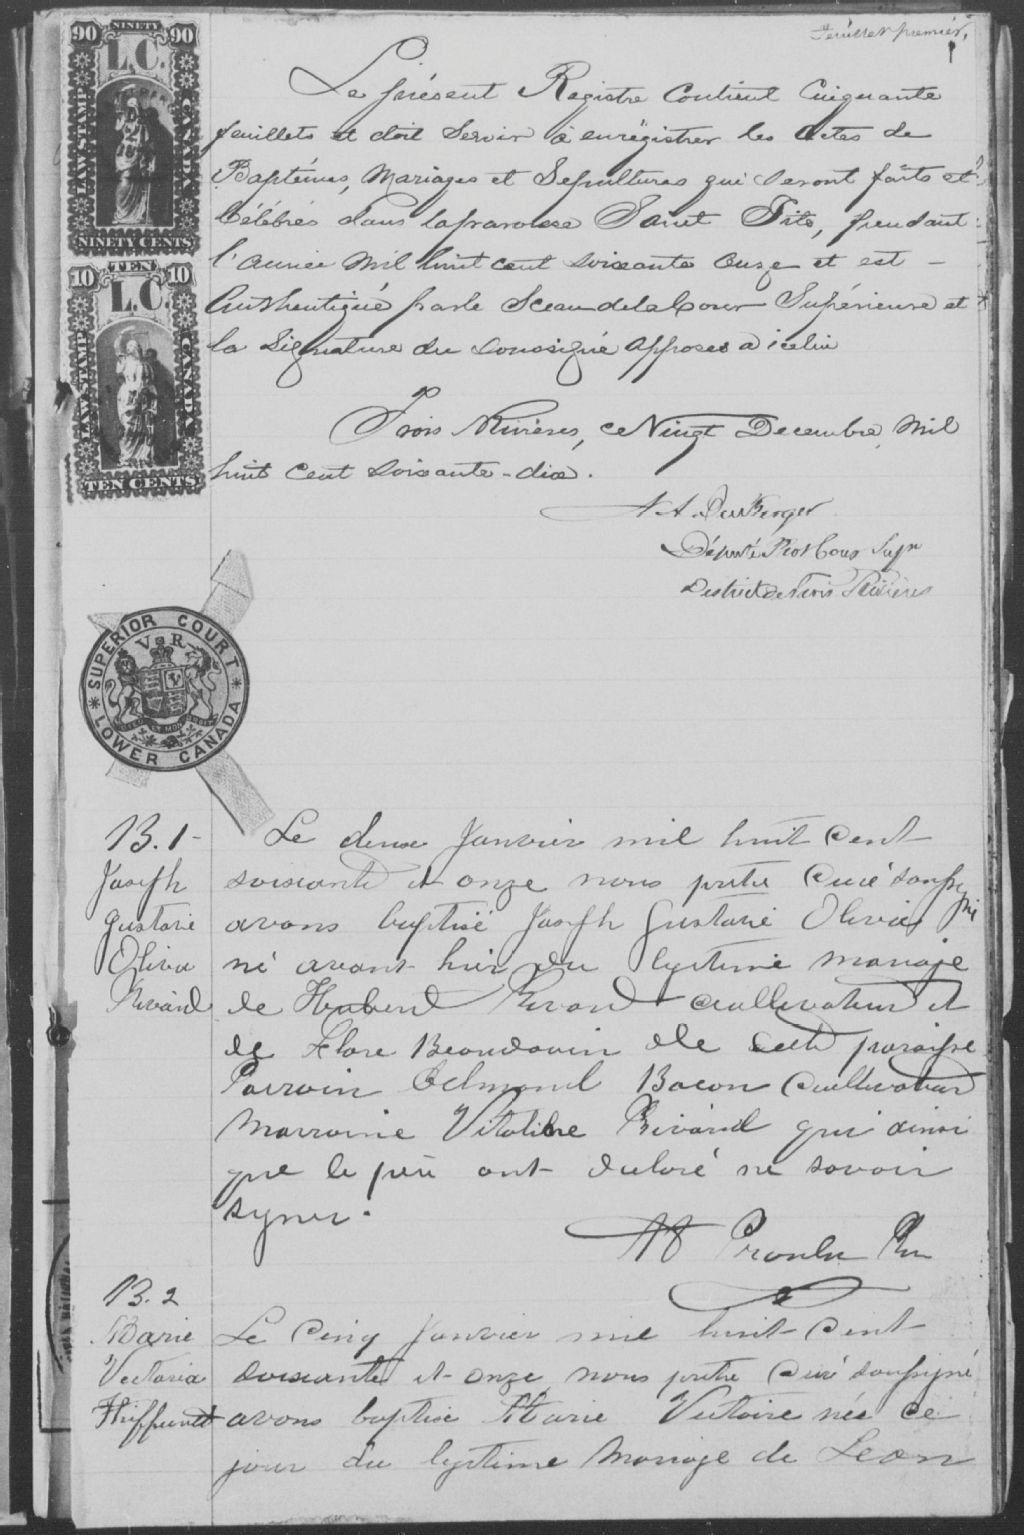 Feuillet premier,
1
NINETY
90 90
L.C.
LAW STAMP
CANADA
NINETY CENTS
TEN
10 10
L.C.
LAW STAMP
CANADA
TEN CENTS
Le présent Registre Contient Cinquante
feuillets et doit Servir à enrégistrer les Actes de
Baptêmes, Mariages et Sepultures qui Seront faits et
Célébrés dans la paroisse Saint Tite, pendant
l'Année Mil huit cent soixante Onze et est -
Authentiqué par le Sceau de la Cour Supérieure et
la Signature du soussigné apposes a icelui
Trois Rivières, ce Vingt Decembre, Mil
huit Cent Soixante-dix.
Député Prot Cour Supr
District de Trois Rivières
SUPERIOR COURT
V R
LOWER CANADA
B. 1-
Joseph
Gustave
Oliva
Rivard
Le deux Janvier mil huit Cent
soixante et onze nous pretre Curé soussigné
avons baptisé Joseph Gustave Oliva
né avant hier du legitime mariage
de Hubert Rivard cultivateur et
de Flore Beaudouin de cette paroisse
Parrain Edmond Bacon Cultivateur
Marraine Vitaline Rivard qui ainsi
que le père ont declaré ne savoir
signer.
Proulx Ptre
B. 2
Marie
Victoria
Le Cinq Janvier mil huit Cent
soixante et onze nous pretre Curé soussigné
avons baptisé Marie Victoire née ce
jour du legitime Mariage de Leon